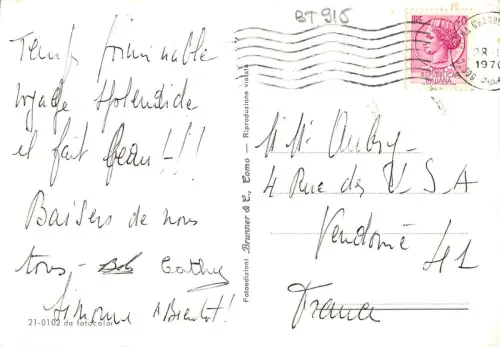 BT 916
Temps formidable
voyage splendide
il fait beau - ! ! !
Baisers de nous
tous - Bob Cathy
Simone A Bientôt !
21-0102 da fotocolor
Fotoedizioni Brunner & C., Como — Riproduzione vietata
LIRE 40
REPUBBLICA
ITALIANA
1970
M. Mme Aubry -
4 Rue des U S A
Vendome
41
France